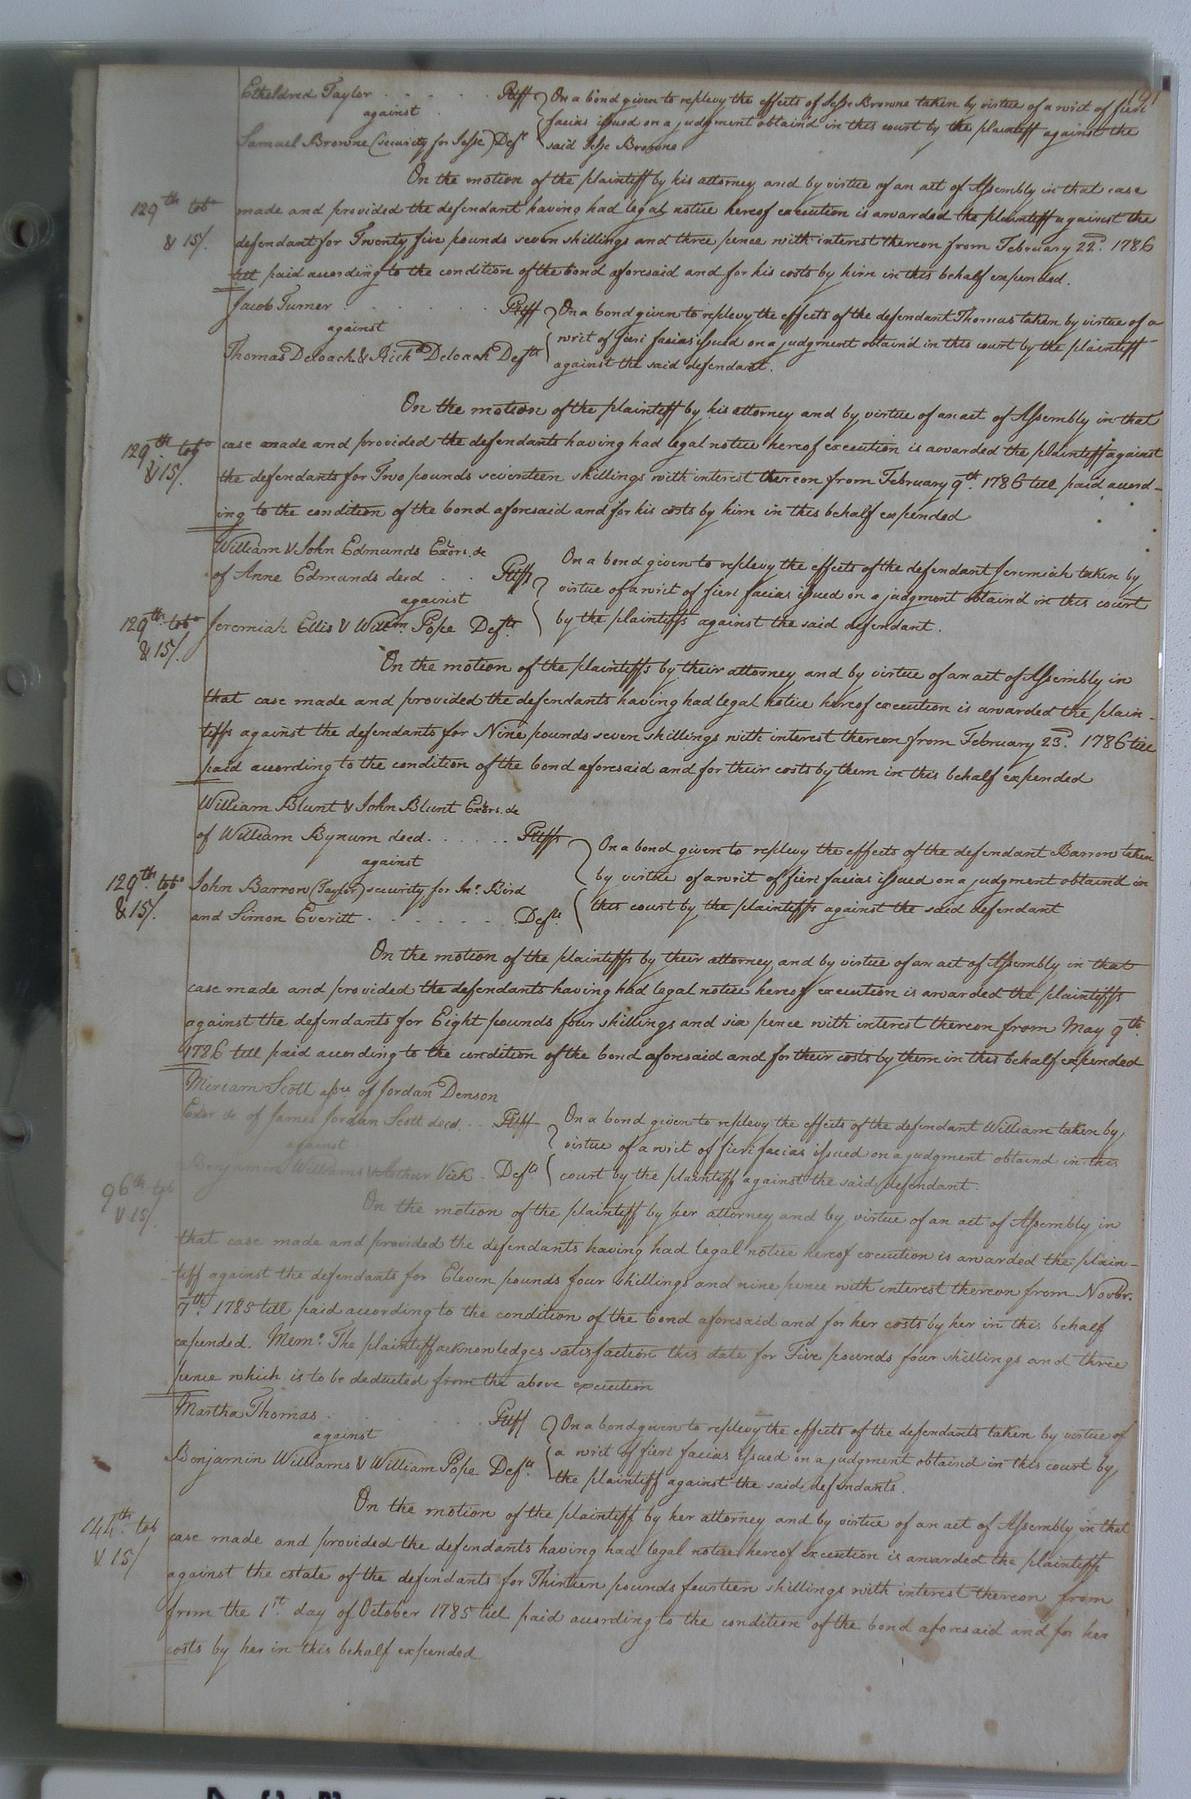 Etheldred Taylor . . . . . Plff
against
Samuel Browne (security for Jesse) Deft
On a bond given to replevy the effects of Jesse Browne taken by virtue of a writ of fieri
facias issued on a judgment obtain'd in this court by the plaintiff against the
said Jesse Browne
On the motion of the plaintiff by his attorney and by virtue of an act of Assembly in that case
129th tobo
& 15/.
made and provided the defendant having had legal notice hereof execution is awarded the plaintiff against the
defendant for Twenty five pounds seven shillings and three pence with interest thereon from February 22d. 1786
till paid according to the condition of the bond aforesaid and for his costs by him in this behalf expended.
Jacob Turner . . . . . Plff
against
Thomas Deloach & Richd Deloach Defts
On a bond given to replevy the effects of the defendant Thomas taken by virtue of a
writ of fieri facias issued on a judgment obtain'd in this court by the plaintiff
against the said defendant.
On the motion of the plaintiff by his attorney and by virtue of an act of Assembly in that
129th. tobo
& 15/.
case made and provided the defendants having had legal notice hereof execution is awarded the plaintiff against
the defendants for Two pounds seventeen shillings with interest thereon from February 9th. 1786 till paid accord-
ing to the condition of the bond aforesaid and for his costs by him in this behalf expended
William & John Edmunds Exors. &c
of Anne Edmunds decd . . Plffs
against
Jeremiah Ellis & Willm. Pope Defts
129th. tobo
& 15/.
On a bond given to replevy the effects of the defendant Jeremiah taken by
virtue of a writ of fieri facias issued on a judgment obtaind in this court
by the plaintiffs against the said defendant.
On the motion of the plaintiffs by their attorney and by virtue of an act of Assembly in
that case made and provided the defendants having had legal notice hereof execution is awarded the plain-
tiffs against the defendants for Nine pounds seven shillings with interest thereon from February 23d. 1786 till
paid according to the condition of the bond aforesaid and for their costs by them in this behalf expended
William Blunt & John Blunt Exors. &c
of William Bynum decd. . . . . . Plffs
against
129th. tobo
& 15/.
John Barrow (Taylor) security for Jno. Bird
and Simon Everitt . . . . . . Defts
On a bond given to replevy the effects of the defendant Barrow taken
by virtue of a writ of fieri facias issued on a judgment obtaind in
this court by the plaintiffs against the said defendant
On the motion of the plaintiffs by their attorney and by virtue of an act of Assembly in that
case made and provided the defendants having had legal notice hereof execution is awarded the plaintiffs
against the defendants for Eight pounds four shillings and six pence with interest thereon from May 9th.
1786 till paid according to the condition of the bond aforesaid and for their costs by them in this behalf expended
Miriam Scott of Jordan Denson
Exor &c of James Jordan Scott decd. . . Plff
against
Benjamin Williams & Arthur Vick . Defts
96th tob
& 15/.
On a bond given to replevy the effects of the defendant William taken by
virtue of a writ of fieri facias issued on a judgment obtaind in this
court by the plaintiff against the said defendant.
On the motion of the plaintiff by her attorney and by virtue of an act of Assembly in
that case made and provided the defendants having had legal notice hereof execution is awarded the plain-
tiff against the defendants for Eleven pounds four shillings and nine pence with interest thereon from Novbr.
7th. 1785 till paid according to the condition of the bond aforesaid and for her costs by her in this behalf
expended. Memo. The plaintiff acknowledges satisfaction this date for Five pounds four shillings and three
pence which is to be deducted from the above execution
Martha Thomas . . . . . Plff
against
Benjamin Williams & William Pope Defts
On a bond given to replevy the effects of the defendants taken by virtue of
a writ of fieri facias issued on a judgment obtaind in this court by
the plaintiff against the said defendants.
On the motion of the plaintiff by her attorney and by virtue of an act of Assembly in that
144th. tob
& 15/
case made and provided the defendants having had legal notice hereof execution is awarded the plaintiff
against the estate of the defendants for Thirteen pounds fourteen shillings with interest thereon from
from the 1st. day of October 1785 till paid according to the condition of the bond aforesaid and for her
costs by her in this behalf expended